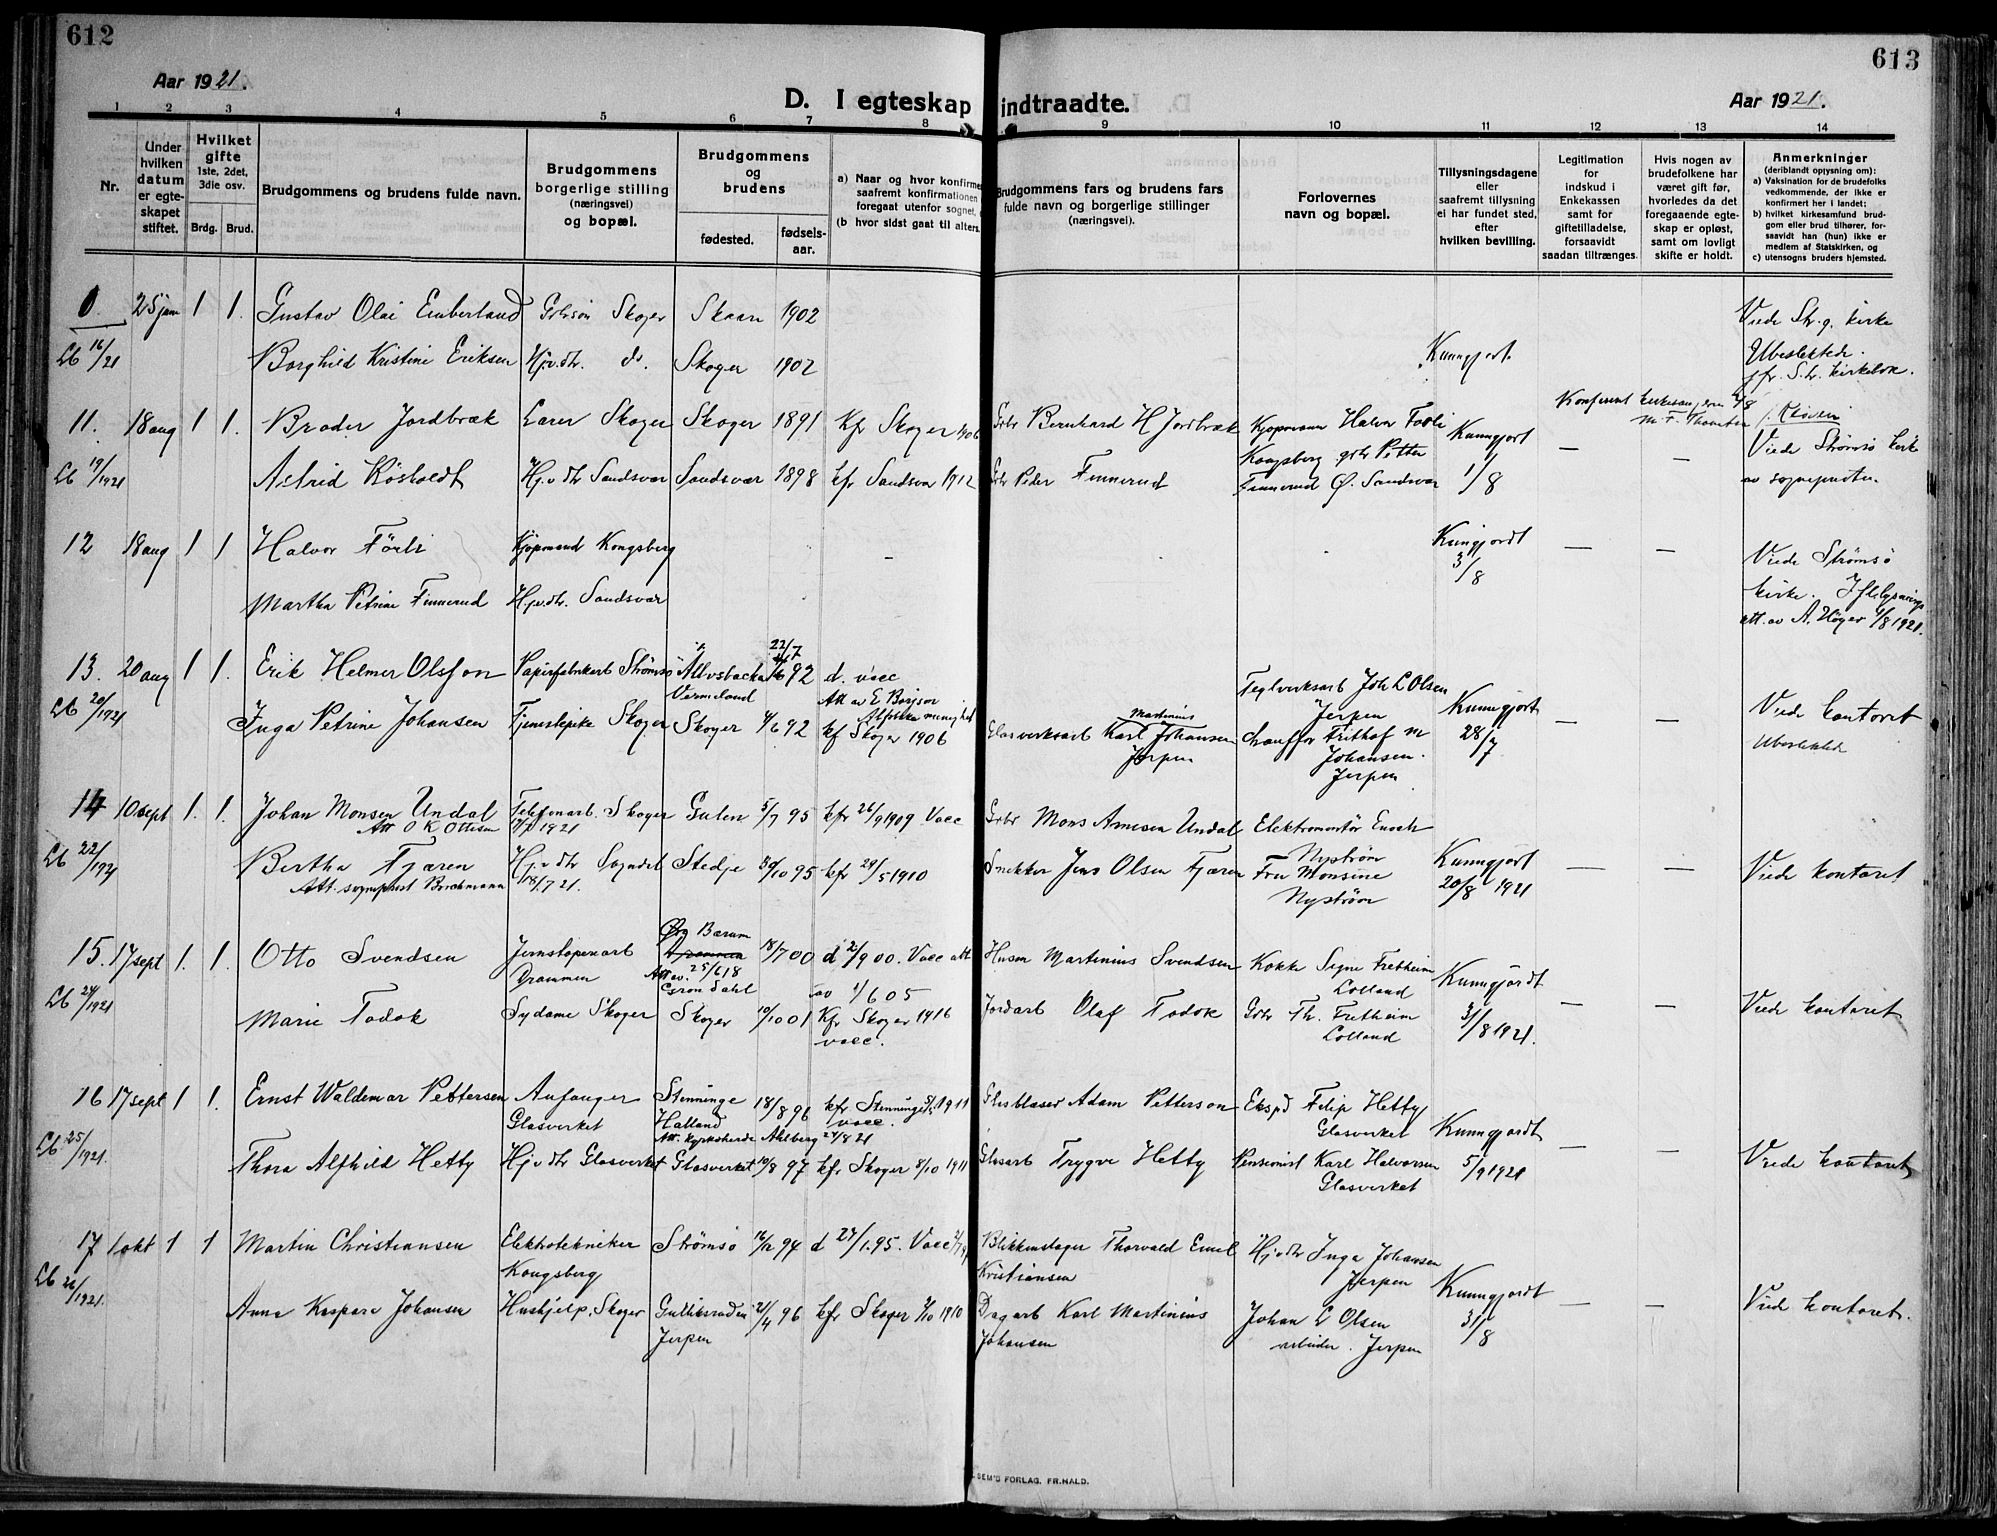 612
613
Aar 1921.
Aar 1921.
D. I egteskap indtraadte.
1 2 3 4 5 6 7 8 9 10 11 12 13 14
Nr.
Under hvilken datum er egte- skapet stiftet.
Hvilket gifte 1ste, 2det, 3die osv.
Brdg. Brud.
Brudgommens og brudens fulde navn.
Brudgommens borgerlige stilling (næringsvei) og bopæl.
Brudgommens og brudens
fødested.
fødsels- aar.
a) Naar og hvor konfirme
saafremt konfirmationen
foregaat utenfor sognet,
(b hvor sidst gaat til alters.
Brudgommens fars og brudens fars
fulde navn og borgerlige stillinger
(næringsvei).
Forlovernes
navn og bopæl.
Tillysningsdagene
eller
saafremt tillysning
ei har fundet sted,
efter
hvilken bevilling.
Legitimation
for
indskud i
Enkekassen
samt for
giftetilladelse,
forsaavidt
saadan tiltrænges.
Hvis nogen av
brudefolkene har
været gift før,
hvorledes da det
foregaaende egte-
skap er opløst,
samt om lovligt
skifte er holdt.
Anmerkninger
(deriblandt opjysning om):
a) Vaksination for de brudefolks
vedkommende, der ikke er
konfirmert her i landet;
b) hvilket kirkesamfund brud-
gom eller brud tilhører, for-
saavidt han (hun) ikke er
medlem af Statskirken, og
c) utensogns bruders hjemsted.
0. 25 jan 1 1. Gustav Olai Emberland Grbrsøn Skoger Skaan 1902
Viede Str.g. kirke
Lb 16/21 Borghild Kristine Eriksen Hjv.dtr. do. Skoger 1902 Kunngjort.
Ubeslektede.
jfr. Str. kirkebok.
11. 18 aug 1 1. Broder Jordbræk Lærer Skoger Skoger 1891 Kfr Skoger 1906 Grbr Bernhard H Jordbræk Kjøpmann Halvor Forli Kunngjort 1/8
Kongsberg grbr Petter
Viede Strømsø kirke
Lb 19/1921 Astrid Rösholdt Hjv.dtr Sandsvær Sandsvær 1898 kfr Sandsvær 1912 Grbr Peder Finnerud Finnerud Ø. Sandsvær
av sogneprestn.
12 18 aug 1 1 Halvor Förli Kjøpmand Kongsberg — Kunngjordt 3/8 — —
Viede Strømsö
Martha Petrine Finnerud Hjv.dtr. Sandsvær
kirke.
att. av A. Höyer 4/8 1921.
13. 20 aug 1 1. Erik Helmer Olsson Papirfabrikarb Strømsö 22/7 92 d. vacc
Vermeland Att av E Börjson
Teglverksarb Joh L Olsen
Jerpen
Kunngjort 28/7 — —
Viede kontoret
Ubeslekted
Lb 20/1921 Inga Petrine Johansen Tjenestepike Skoger Skoger 4/6 92 kf Skoger 1906 Glasverksarb Karl Martinius Johansen Jerpen
Chauffør Frithof M
Johansen.
Jerpen
14 10 sept 1. 1. Johan Monsen Undal Telefonarb. Skoger Gulen 5/7 95 kfr 26/9 1909 Vacc Grbr Mons Arnesen Undal Elektromontör Enoch
Att O K Ottesen 1921
Nyström
Lb 22/1921 Bertha Fjæren Hjv dtr Sogndal Stedje 30/10 95 kfr 29/5 1910 Snekker Jens Olsen Fjæren Fru Monsine
Nyström
Kunngjort
20/8 1921 — —
Viede kontoret
Att. sogneprest Borchmann 18/7 21.
15. 17 sept 1. 1. Otto Svendsen Jernstøperiarb Øvg Bærum 18/7 00 d 2/9 00. Vacc att Husm Martinius Svendsen Kokke Signe Fretheim
Drammen Att av. 25/6 18 av 1/6 05
Grön Dahl
Lolland
Kunngjordt
3/8 1921. — —
Viede kontoret
Lb 24/1921 Marie Todok Sydame Skoger Skoger 10/10 01 Kfr Skoger 1916 Jordarb Olaf Todok Grbr Th. Fretheim
vacc.
Lolland
16 17 sept 1 1. Ernst Waldemar Pettersen Anfanger Stenninge 18/8 96 kfr Stenninge 1911 Glasblaser Adam Petterson Ekspd Filip Hetty
Glasverket Halland vacc.
Glasverket
Att. kyrkoherde Ahlberg 24/8 21
Kunngjordt
5/9 1921 — —
Viede kontoret
Lb 25/1921. Thora Alfhild Hetty Hjv dtr Glasverket Glasverket 10/8 97 kfr Skoger 8/10 1911 Glasarb Trygve Hetty Pensionist Karl Halvorsen
Glasverket
17 1 okt 1 1 Martin Christiansen Elektrotekniker Strømsö 16/12 94 d 27/1 95. Vacc Blikkenslager Thorvald Emil
Kongsberg
Kristiansen
Hjv dtr Inga Johansen
Jerpen
Kunngjordt
3/8 — —
Viede kontoret.
Lb 26/1921. Anna Kaspara Johansen Hushjelp, Skoger Gulliksruden 21/4 96 kfr Skoger 2/10 1910 Dagarb Karl Martinius
Jerpen
Johansen
Johan L Olsen
arbeider. Jerpen
SEM'S FORLAG, FR.HALD.